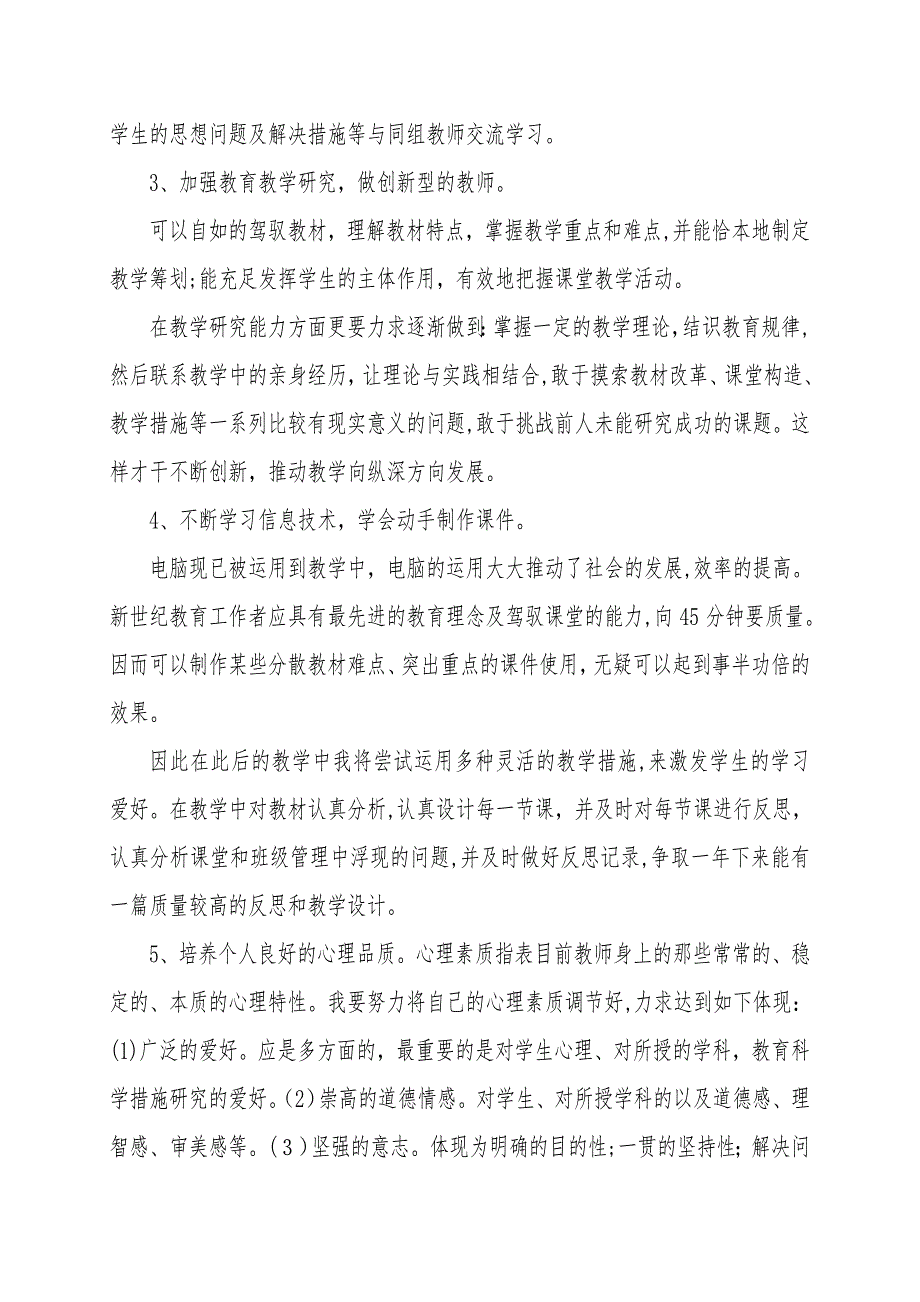 学生的思想问题及解决措施等与同组教师交流学习。
3、加强教育教学研究，做创新型的教师。
可以自如的驾驭教材，理解教材特点，掌握教学重点和难点,并能恰本地制定
教学筹划;能充足发挥学生的主体作用，有效地把握课堂教学活动。
在教学研究能力方面更要力求逐渐做到:掌握一定的教学理论，结识教育规律,
然后联系教学中的亲身经历，让理论与实践相结合,敢于摸索教材改革、课堂构造、
教学措施等一系列比较有现实意义的问题,敢于挑战前人未能研究成功的课题。这
样才干不断创新，推动教学向纵深方向发展。
4、不断学习信息技术，学会动手制作课件。
电脑现已被运用到教学中，电脑的运用大大推动了社会的发展,效率的提高。
新世纪教育工作者应具有最先进的教育理念及驾驭课堂的能力,向 45 分钟要质量。
因而可以制作某些分散教材难点、突出重点的课件使用，无疑可以起到事半功倍的
效果。
因此在此后的教学中我将尝试运用多种灵活的教学措施,来激发学生的学习
爱好。在教学中对教材认真分析,认真设计每一节课，并及时对每节课进行反思，
认真分析课堂和班级管理中浮现的问题,并及时做好反思记录,争取一年下来能有
一篇质量较高的反思和教学设计。
5、培养个人良好的心理品质。心理素质指表目前教师身上的那些常常的、稳
定的、本质的心理特性。我要努力将自己的心理素质调节好,力求达到如下体现：
(1)广泛的爱好。应是多方面的，最重要的是对学生心理、对所授的学科，教育科
学措施研究的爱好。（2）崇高的道德情感。对学生、对所授学科的以及道德感、理
智感、审美感等。(３）坚强的意志。体现为明确的目的性;一贯的坚持性；解决问